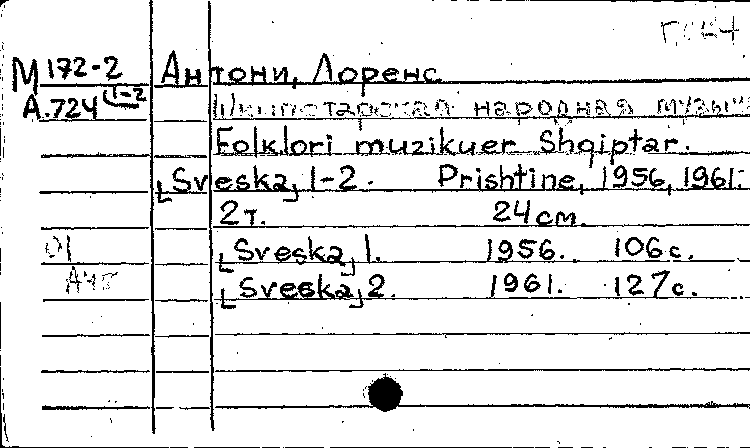 М 172-2 Антони, Лоренс
А.724 1-2 Шкипетарская народная музыка
Folklori muzikuer Shqiptar.
[Sveska] 1-2. Prishtine, 1956, 1961.
2т. 24 см.
01 [Sveska] 1. 1956. 106 с.
[Sveska] 2. 1961. 127 с.